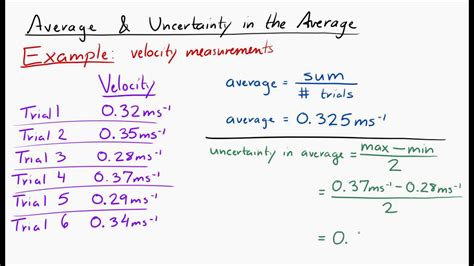 Average & Uncertainty in the Average
Example: velocity measurements
Velocity
Trial 1 0.32ms⁻¹
Trial 2 0.35ms⁻¹
Trial 3 0.28ms⁻¹
Trial 4 0.37ms⁻¹
Trial 5 0.29ms⁻¹
Trial 6 0.34ms⁻¹
average = sum / # trials
average = 0.325ms⁻¹
uncertainty in average = max - min / 2
= 0.37ms⁻¹ - 0.28ms⁻¹ / 2
= 0.